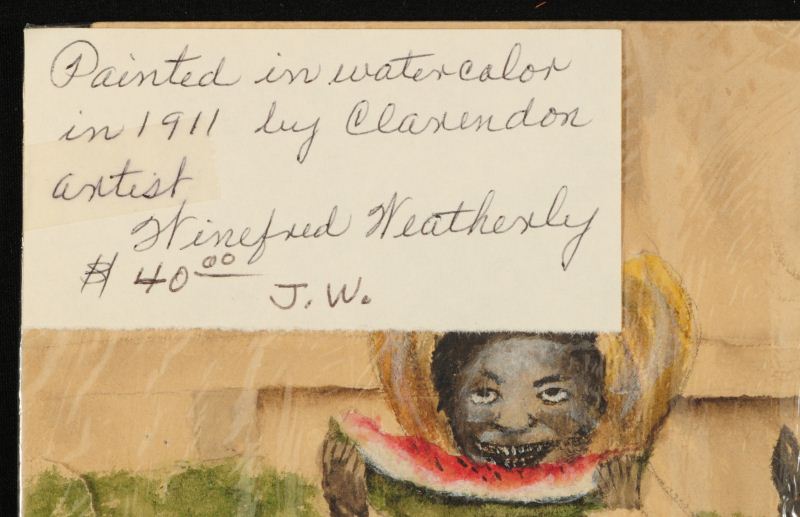 Painted in watercolor
in 1911 by Clarendon
artist
Winefred Weatherly
$ 40.00
J.W.